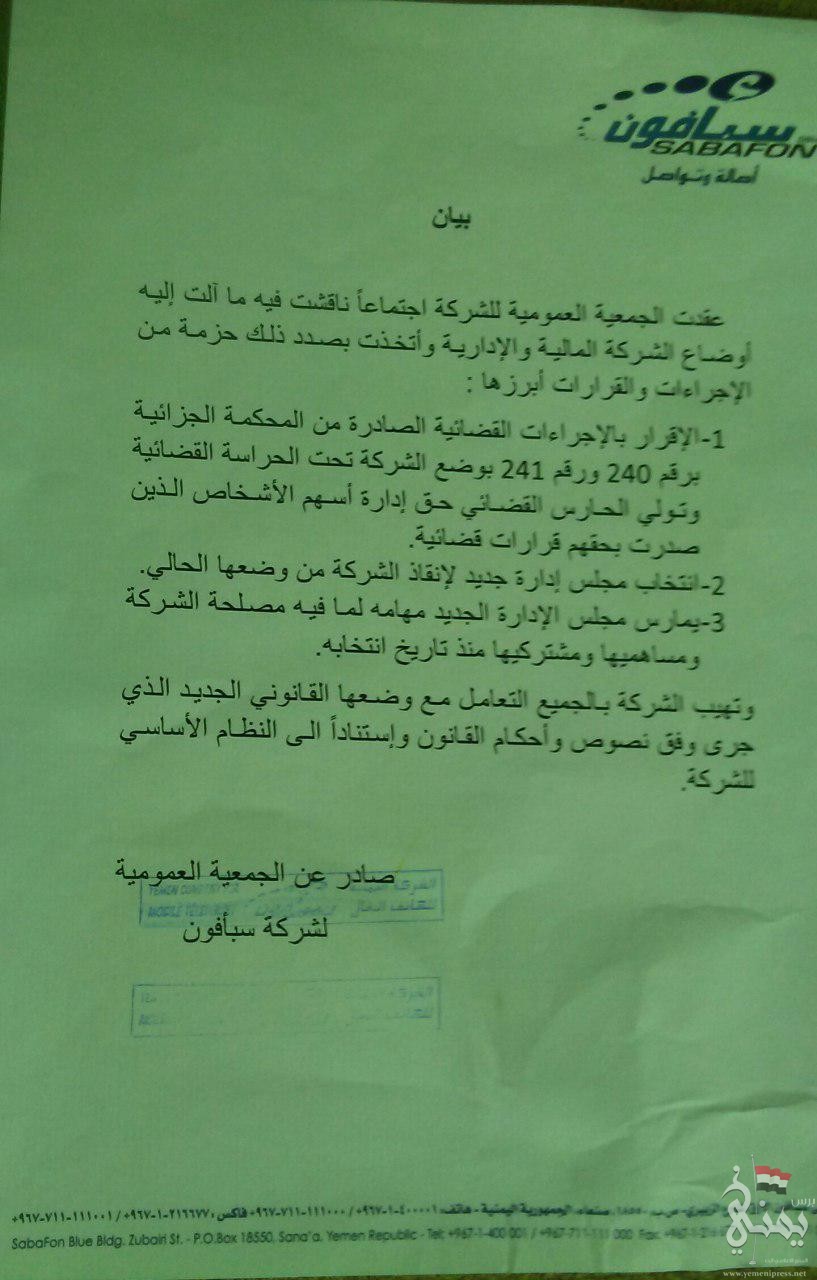 سبأفون
SABAFON
أصالة وتواصل
بيان
عقدت الجمعية العمومية للشركة اجتماعاً ناقشت فيه ما آلت إليه
أوضاع الشركة المالية والإدارية وأتخذت بصدد ذلك حزمة من
الإجراءات والقرارات أبرزها :
1-الإقرار بالإجراءات القضائية الصادرة من المحكمة الجزائية
برقم 240 ورقم 241 بوضع الشركة تحت الحراسة القضائية
وتولي الحارس القضائي حق إدارة أسهم الأشخاص الذين
صدرت بحقهم قرارات قضائية.
2-انتخاب مجلس إدارة جديد لإنقاذ الشركة من وضعها الحالي.
3-يمارس مجلس الإدارة الجديد مهامه لما فيه مصلحة الشركة
ومساهميها ومشتركيها منذ تاريخ انتخابه.
وتهيب الشركة بالجميع التعامل مع وضعها القانوني الجديد الذي
جرى وفق نصوص وأحكام القانون وإستناداً الى النظام الأساسي
للشركة.
صادر عن الجمعية العمومية
الشركة
YEMEN
للهاتف النقال
MOBILE
لشركة سبأفون
الزبيري - ص.ب ١٨٥٥٠ صنعاء، الجمهورية اليمنية - هاتف: ٤٠٠٠٠١-١-٩٦٧+ / ١١١٠٠٠-٧١١-٩٦٧+ فاكس: ٢١٦٦٧٧-١-٩٦٧+ / ١١١٠٠١-٧١١-٩٦٧+
SabaFon Blue Bldg. Zubairi St. - P.O.Box 18550, Sana'a, Yemen Republic - Tel: +967-1-400 001 / +967-711-111 000 Fax: +967-1-216
يمني برس
www.yemenipress.net